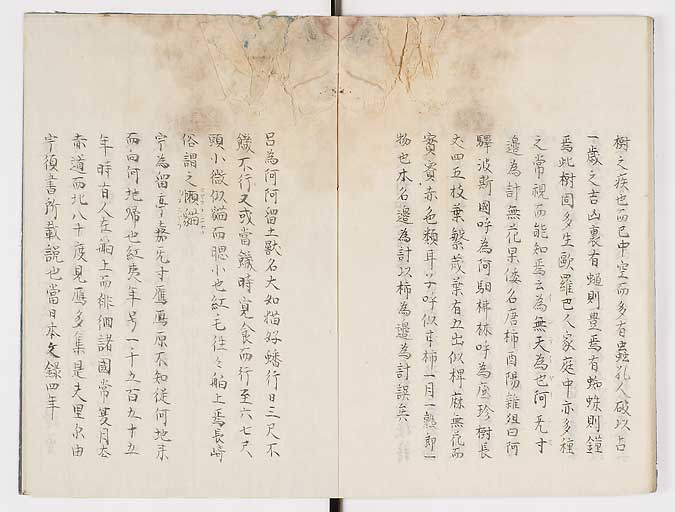 樹之疾也而已中空而多有蟲孔人破以占
一歳之吉凶裏有蠅則豊焉有蜘蛛則饉
焉此樹固多生歐羅巴人家庭中亦多種
之常視而能知焉云為無天為也阿无寸
邊為計無花果倭名唐柿酉陽雜俎曰阿
驛波斯國呼為阿馹拂林呼為底珍樹長
丈四五枝葉繁茂葉有五出似椑麻無花而
實實赤色類耳子呼似串柿一月一熟即一
物也本名邊為計以柿為邊為計誤矣
呂為阿阿留土獸名大如猫好蟠行日三尺不
饑不行又或當饑時覓食而行至六七尺
頭小微似貓而腮小也紅毛往々舶上焉長崎
俗謂之懶貓
宇為留亭嘉无寸鷹鷹原不知従何地来
而向何地帰也紅夷年号一千五百九十五
年時有人在舶上而徘徊諸國常夏月去
赤道而北八十度見鷹多集是夫里尓由
宇須書所載説也當日本文録四年